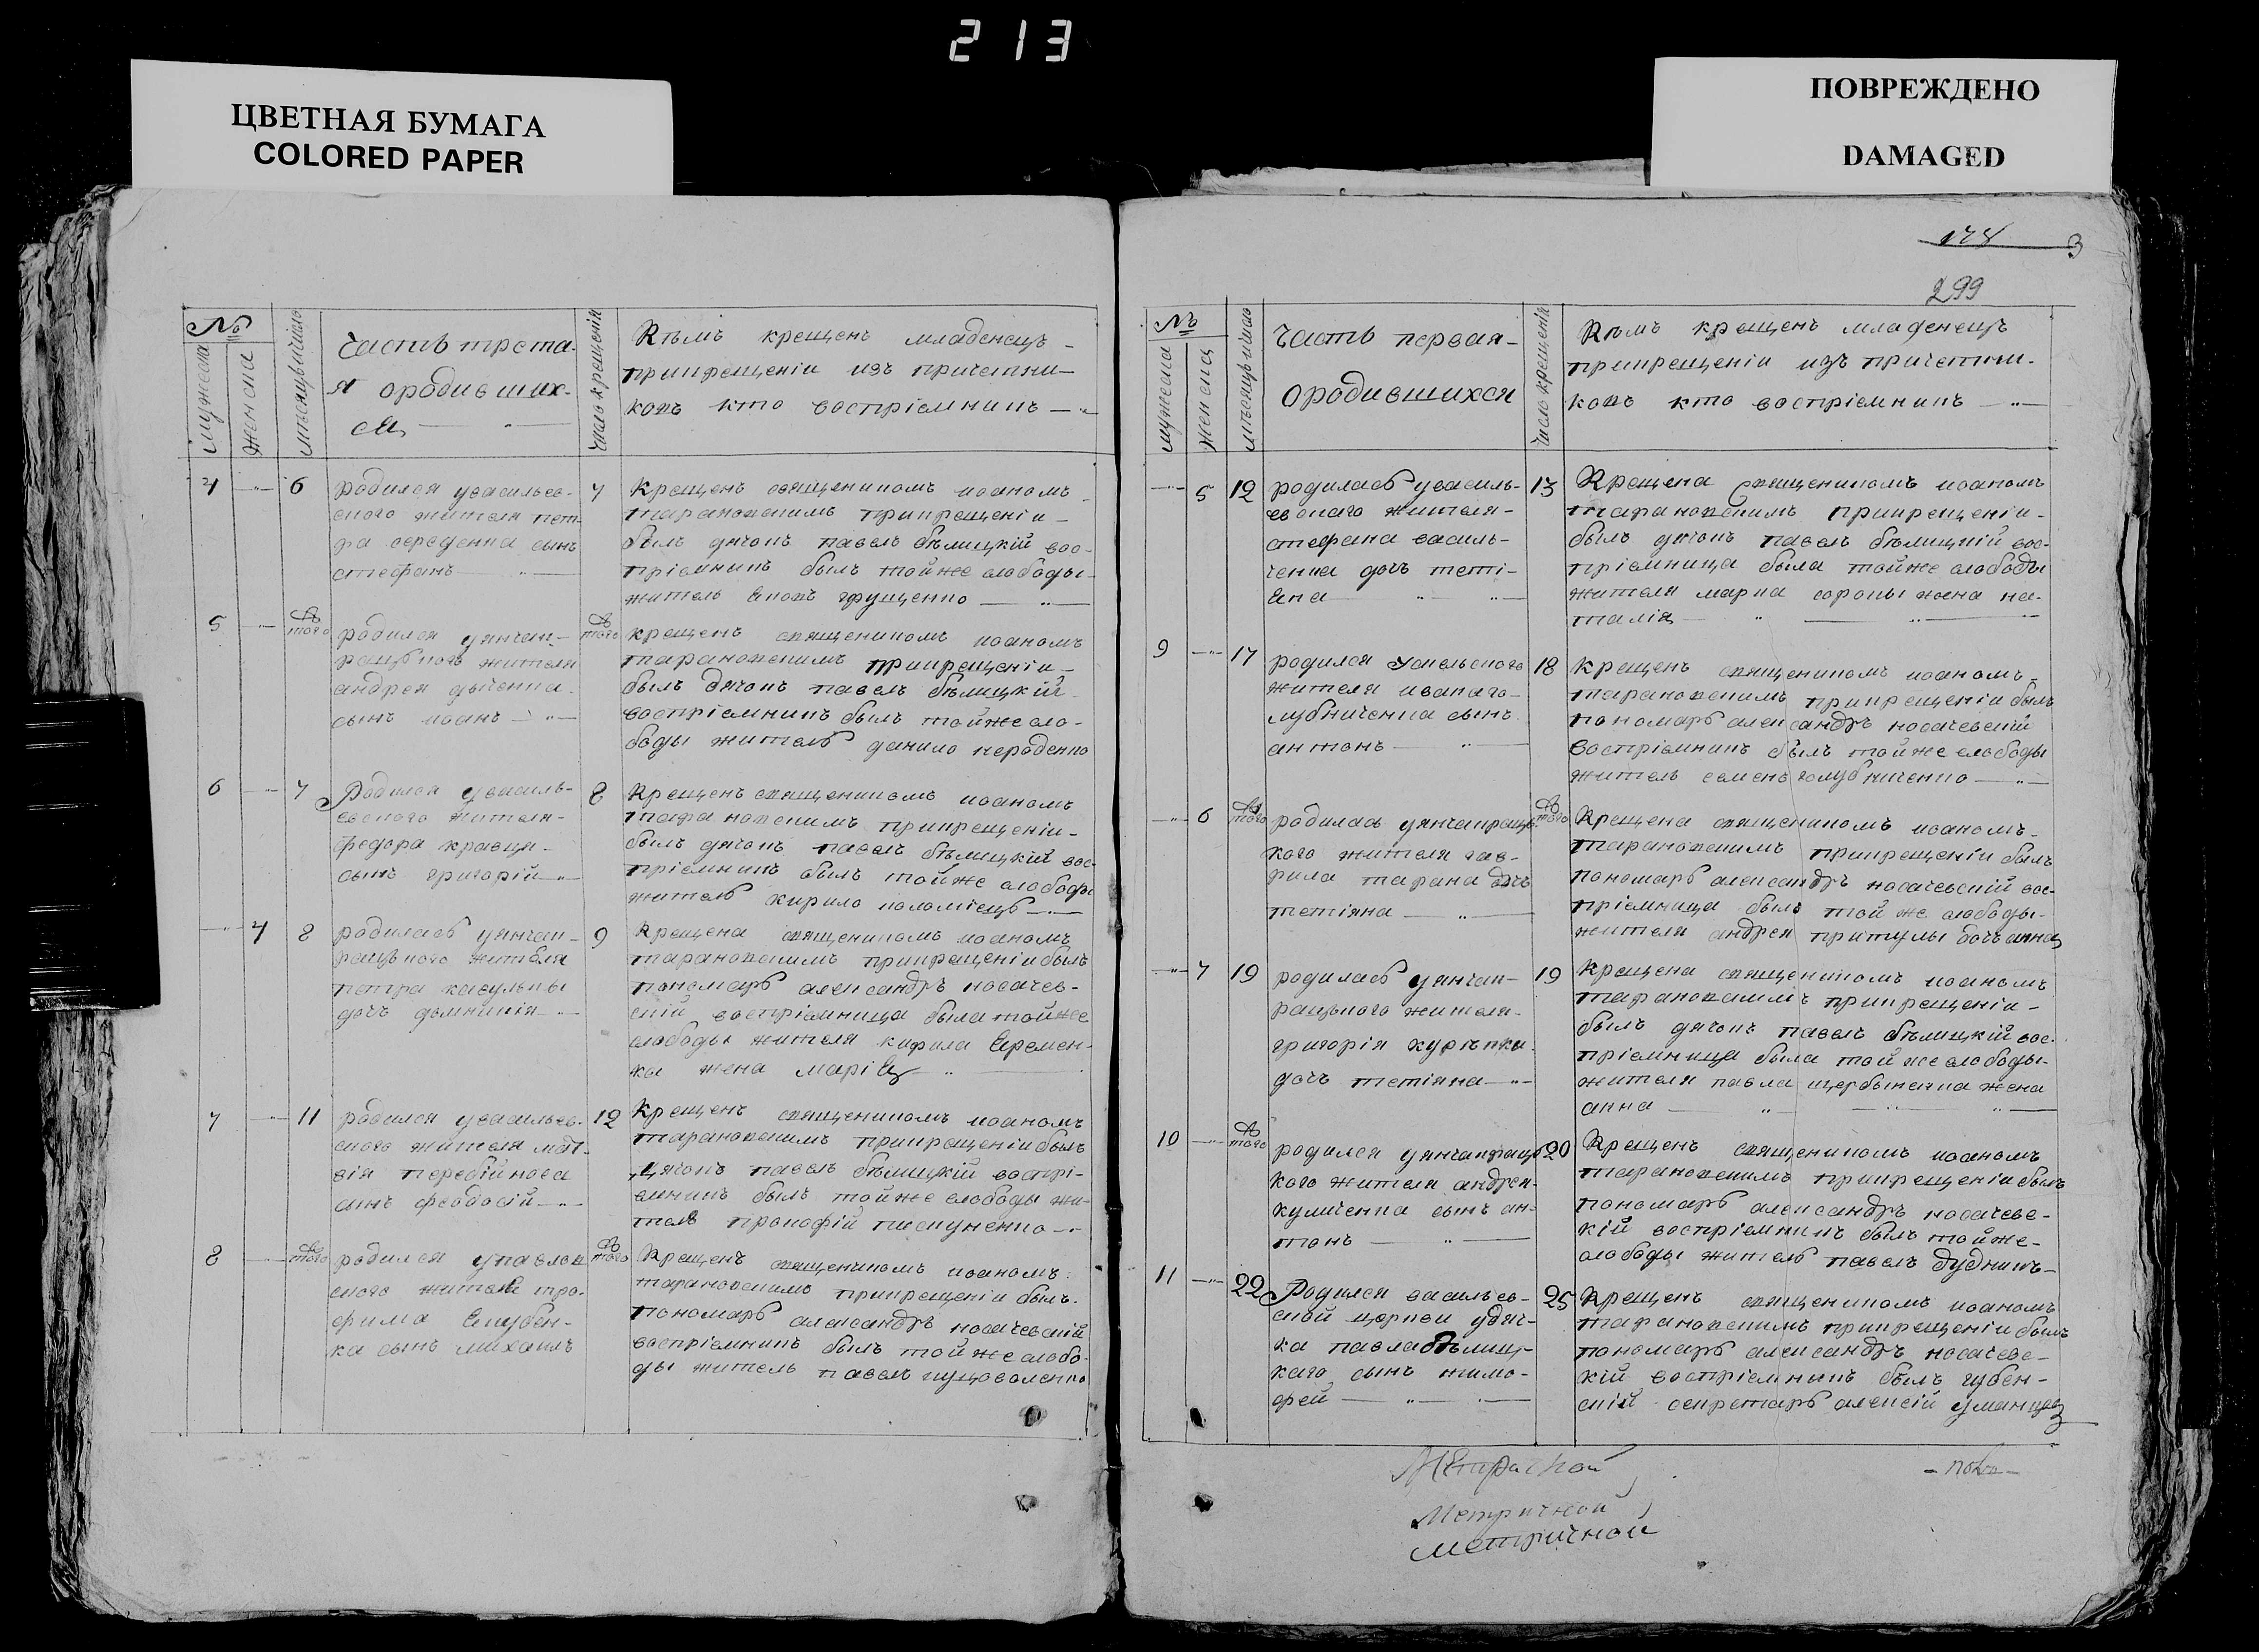 213
ЦВЕТНАЯ БУМАГА
COLORED PAPER
№
мужеска
женска
мѣсяцъ и число
часть трета-
я ородивших-
ся
число крещенія
Кѣмъ крещенъ младенецъ
прикрещеніи изъ причетни-
ковъ кто воспріемникъ
4 6 родился увасильев-
ского жителя пет-
ра середенка сынъ
стефанъ
7 Крещенъ священикомъ иоаномъ
тарановскимъ прикрещеніи
былъ дячокъ павелъ бѣлицкій вос-
пріемникъ былъ тойже слободы
житель
5 того родился уянчак-
рацкого жителя
андрея дяченка
сынъ иоанъ
того крещенъ священикомъ иоаномъ
тарановскимъ прикрещеніи
былъ дячокъ павелъ бѣлицкій
воспріемникъ былъ тойже сло-
боды житель данило нероденко
6 7 Родился увасиль-
евского жителя
федора кравця
сынъ григорій
8 Крещенъ священикомъ иоаномъ
тарановскимъ прикрещеніи
былъ дячокъ павелъ бѣлицкій вос-
пріемникъ былъ тойже слободы
житель кирило коломіецъ
4 8 родилась уянчак-
рацкого жителя
петра
дочь домникія
9 Крещена священикомъ иоаномъ
тарановскимъ прикрещеніи былъ
пономарь александръ носачев-
скій воспріемница была тойже
слободы жителя кирила Еремен-
ка жена марія
7 11 родился увасильев-
ского жителя мат-
вія перебійноса
сынъ феодосій
12 Крещенъ священикомъ иоаномъ
тарановскимъ прикрещеніи былъ
дячокъ павелъ бѣлицкій воспрі-
емникъ былъ тойже слободы жи-
тель прокофій пискуненко
8 того родился упавлов
ского жителя тро-
фима
ка сынъ михаилъ
того Крещенъ священикомъ иоаномъ
тарановскимъ прикрещеніи былъ
пономарь александръ носачевскій
воспріемникъ былъ тойже слобо-
ды житель павелъ
ПОВРЕЖДЕНО
DAMAGED
178 3
299
№
мужеска
женска
мѣсяцъ и число
часть первая
ородившихся
число крещенія
Кѣмъ крещенъ младенецъ
прикрещеніи изъ причетни-
ковъ кто воспріемникъ
5 12 родилась увасиль-
евскаго жителя
стефана василь-
ченка дочь теті-
яна
13 Крещена священикомъ иоаномъ
тарановскимъ прикрещеніи
былъ дячокъ павелъ бѣлицкій вос-
пріемница была тойже слободы
жителя марка сороки жена на-
талія
9 17 родился
жителя иванаго-
лубниченка сынъ
антонъ
18 крещенъ священикомъ иоаномъ
тарановскимъ прикрещеніи былъ
пономарь александръ носачевскій
воспріемникъ былъ тойже слободы
житель семенъ голубниченко
6 того родилась уянчакрац-
кого жителя гав-
рила тарана дочь
тетіяна
того Крещена священикомъ иоаномъ
тарановскимъ прикрещеніи былъ
пономарь александръ носачевскій вос-
пріемница былъ той же слободы
жителя андрея притулы дочь анна
7 19 родилась уянчак-
рацкого жителя
григорія курѣпки
дочь тетіяна
19 Крещена священикомъ иоаномъ
тарановскимъ прикрещеніи
былъ дячокъ павелъ бѣлицкій вос-
пріемница была той же слободы
жителя павла щербыненка жена
анна
10 того родился уянчакрац
кого жителя андрея
куличенка сынъ ан-
тонъ
20 Крещенъ священикомъ иоаномъ
тарановскимъ прикрещеніи былъ
пономарь александръ носачевс-
кій воспріемникъ былъ тойже
слободы житель павелъ дудникъ
11 22 Родился васильев-
ской церкви удяч-
ка павла бѣлиц-
каго сынъ тимо-
фей
25 Крещенъ священикомъ иоаномъ
тарановскимъ прикрещеніи былъ
пономарь александръ носачевс-
кій воспріемникъ былъ губен-
скій секретарь алексій уманцов
Метричной
Метричной
Метричной